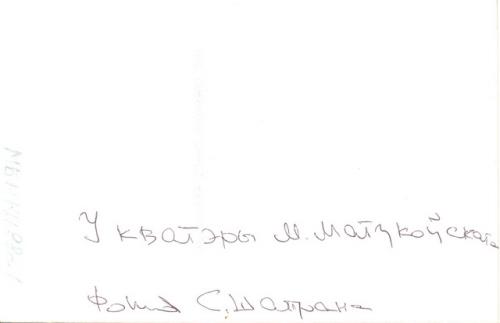 У кватэры М. Матукоўскага
Фота С. Шапрана